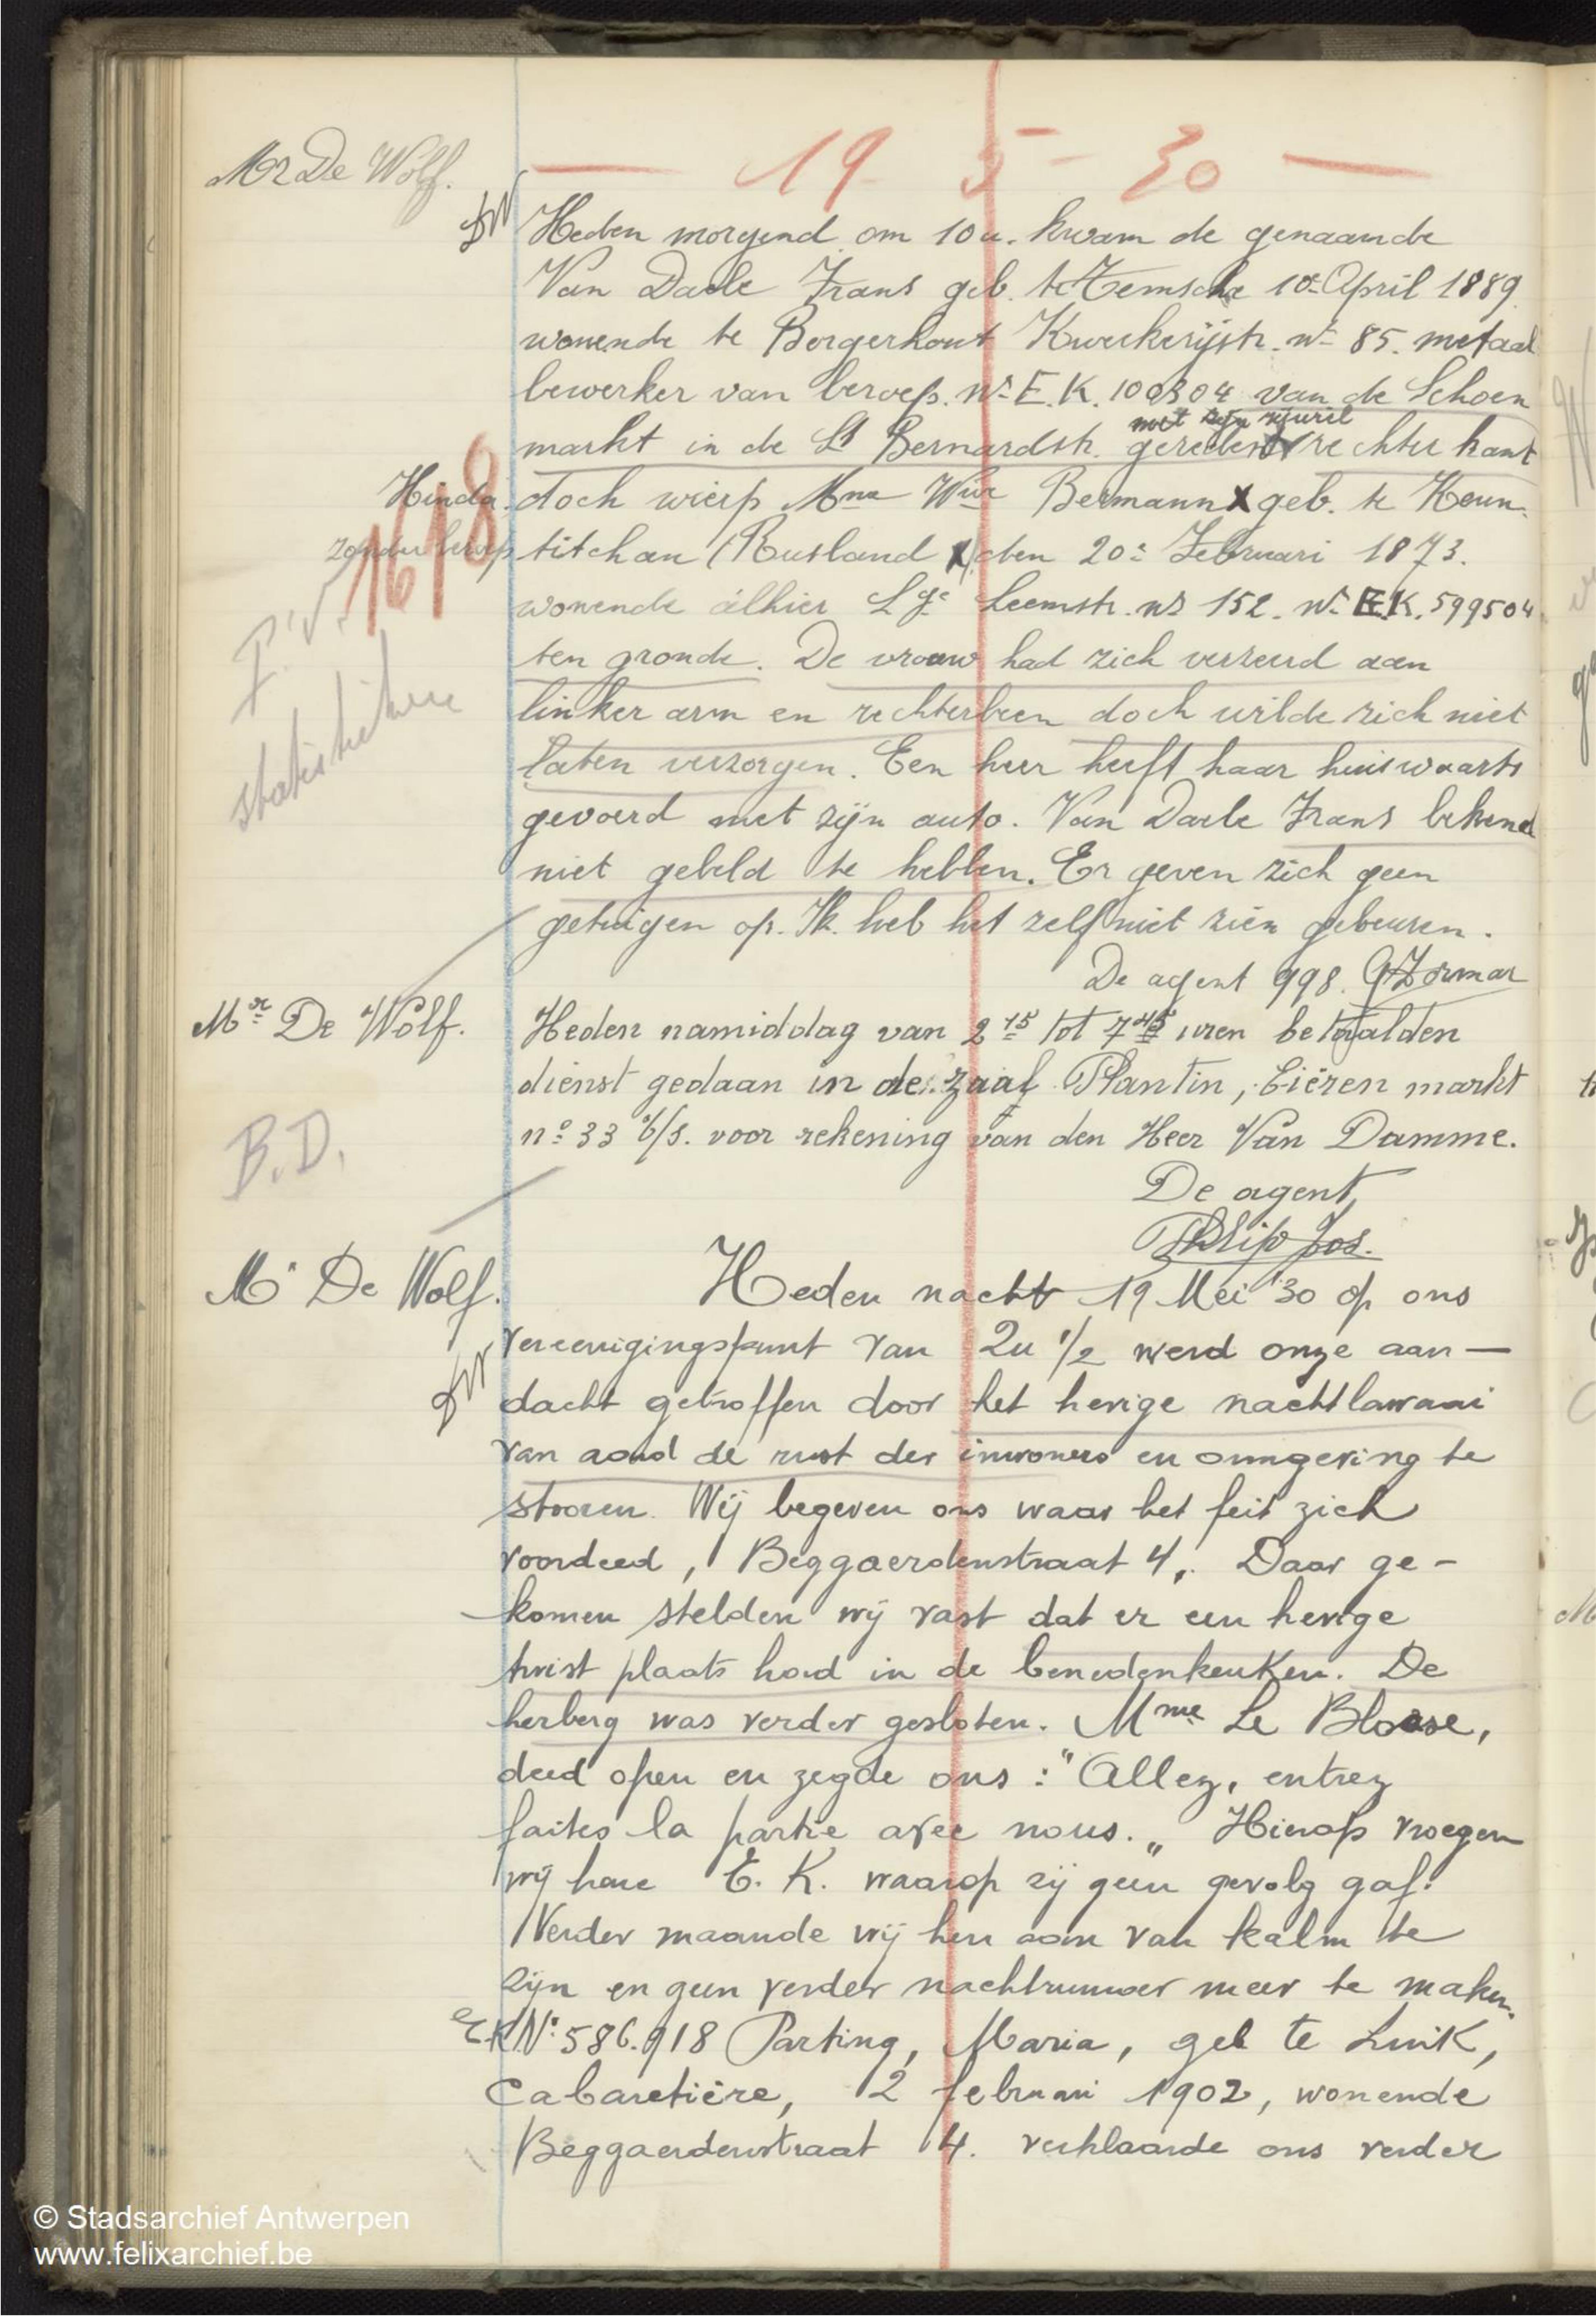 Mr De Wolf.
— 19 - 5 - 30 —
DW
Heden morgend om 10 u. kwam de genaamde
Van Daele Frans geb. te Temsche 10e April 1889
wonende te Borgerhout Kweekerijstr. nr 85. metaal
bewerker van beroep. Nr E.K. 100304 van de Schoen
met zijn rijwiel
markt in de St Bernardstr. gereden rechter kant
Hinda.
doch wierp Mme Wwe Bermann X geb. te Keun
1618
zonder beroep
titchan (Rusland X den 20e Februari 1873.
wonende alhier Lge Leemstr. nr 152. Nr E.K. 599504
P.V.
ten gronde. De vrouw had zich verzeerd aan
linker arm en rechterbeen doch wilde zich niet
statistieken
laten verzorgen. Een heer heeft haar huiswaarts
gevoerd met zijn auto. Van Daele Frans bekend
niet gebeld te hebben. Er geven zich geen
getuigen op. Ik heb het zelf niet zien gebeuren.
De agent 998.
Mr De Wolf.
Heden namiddag van 2 15 tot 7 45 uren betaalden
dienst gedaan in de zaal Plantin, Eiëren markt
B.D.
no 33 b/s. voor rekening van den Heer Van Damme.
De agent,
Philip Jos.
Mr De Wolf.
Heden nacht 19 Mei '30 op ons
DW
vereenigingspunt van 2u 1/2 werd onze aan—
dacht getroffen door het hevige nachtlawaai
van aard de rust der inwoners en omgeving te
stooren. Wij begeven ons waar het feit zich
voordeed, Beggaerdenstraat 4,. Daar ge-
komen stelden wij vast dat er een hevige
twist plaats had in de benedenkeuken. De
herberg was verder gesloten. Mme Le Blosse,
deed open en zegde ons: "Allez, entrez
faites la partie avec nous." Hierop vroegen
wij hare E.K. waarop zij geen gevolg gaf.
Verder maande wij hen aan van kalm te
zijn en geen verder nachtrumoer meer te maken.
E.K. No 586.918 Parting, Maria, geb te Luik,
Cabaretière, 2 februari 1902, wonende
Beggaerdenstraat 4. verklaarde ons verder
© Stadsarchief Antwerpen
www.felixarchief.be